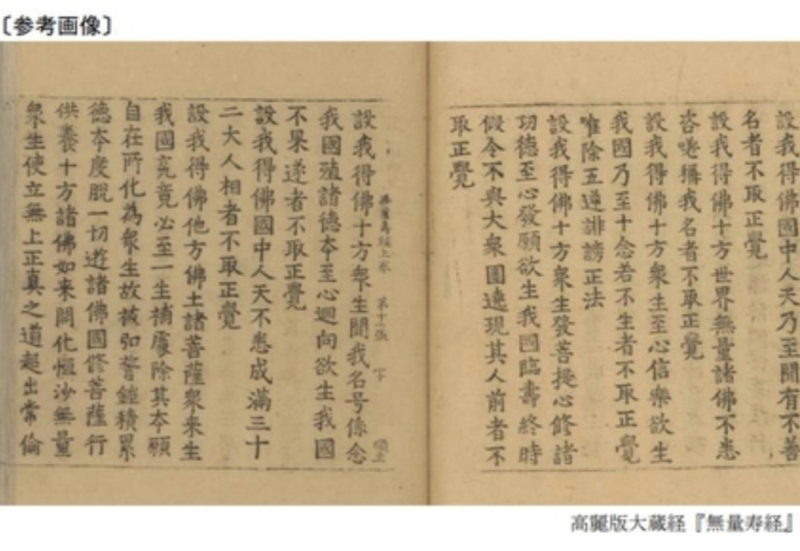 〔参考画像〕
設我得佛國中人天乃至聞有不善
名者不取正覺
設我得佛十方世界無量諸佛不悉
咨嗟稱我名者不取正覺
設我得佛十方衆生至心信樂欲生
我國乃至十念若不生者不取正覺
唯除五逆誹謗正法
設我得佛十方衆生發菩提心修諸
功德至心發願欲生我國臨壽終時
假令不與大衆圍遶現其人前者不
取正覺
無量壽經上卷 第十一張 字
設我得佛十方衆生聞我名号係念
我國殖諸德本至心迴向欲生我國
不果遂者不取正覺
設我得佛國中人天不悉成滿三十
二大人相者不取正覺
設我得佛他方佛土諸菩薩衆来生
我國究竟必至一生補處除其本願
自在所化為衆生故被弘誓鎧積累
德本度脫一切遊諸佛國修菩薩行
供養十方諸佛如来開化恒沙無量
衆生使立無上正真之道超出常倫
高麗版大蔵経『無量寿経』